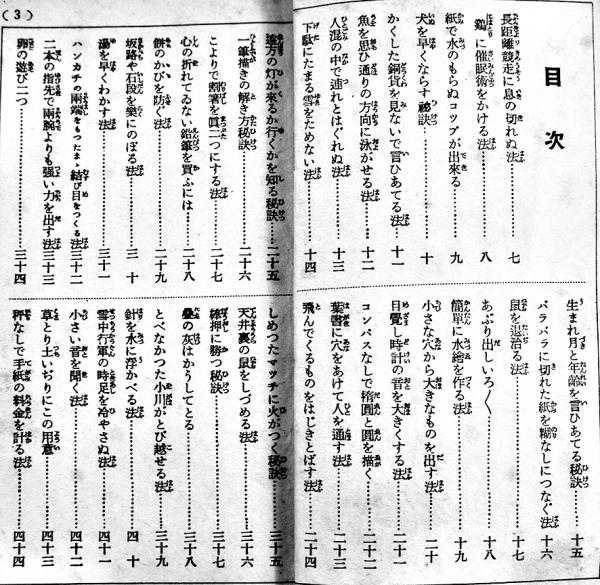 目次
長距離競走に息の切れぬ法………七
鷄に催眠術をかける法………八
紙で水のもらぬコップが出來る………九
犬を早くならす秘訣………十
かくした銅貨を見ないで言ひあてる法………十一
魚を思ひ通りの方向に泳がせる法………十二
人混の中で連れとはぐれぬ法………十三
下駄にたまる雪をためない法………十四
生まれ月と年齡を言ひあてる秘訣………十五
バラバラに切れた紙を糊なしにつなぐ法………十六
鼠を退治る法………十七
あぶり出しいろ〱………十八
簡單に水繪を作る法………十九
小さな穴から大きなものを出す法………二十
目覺し時計の音を大きくする法………二十一
コンパスなしで楕圓と圓を描く………二十二
葉書に穴をあけて人を通す法………二十三
飛んでくるものをはじきとばす法………二十四
(3)
遠方の灯が來るか行くかを知る秘訣………二十五
一筆描きの解き方秘訣………二十六
こよりで割箸を眞二つにする法………二十七
心の折れてゐない鉛筆を買ふには………二十八
餅のかびを防ぐ法………二十九
坂路や石段を樂にのぼる法………三十
湯を早くわかす法………三十一
ハンカチの兩端をもつたまゝ結び目をつくる法………三十二
二本の指先で兩腕よりも强い力を出す法………三十三
卵の遊び二つ………三十四
しめつたマッチに火がつく秘訣………三十五
天井裏の鼠をしづめる法………三十六
棒押に勝つ秘訣………三十七
疊の灰はかうしてとる………三十八
とべなかつた小川がとび越せる法………三十九
針を水に浮かべる法………四十
雪中行軍の時足を冷やさぬ法………四十一
小さい音を聞く法………四十二
草とり土いぢりにこの用意………四十三
秤なしで手紙の料金を計る法………四十四